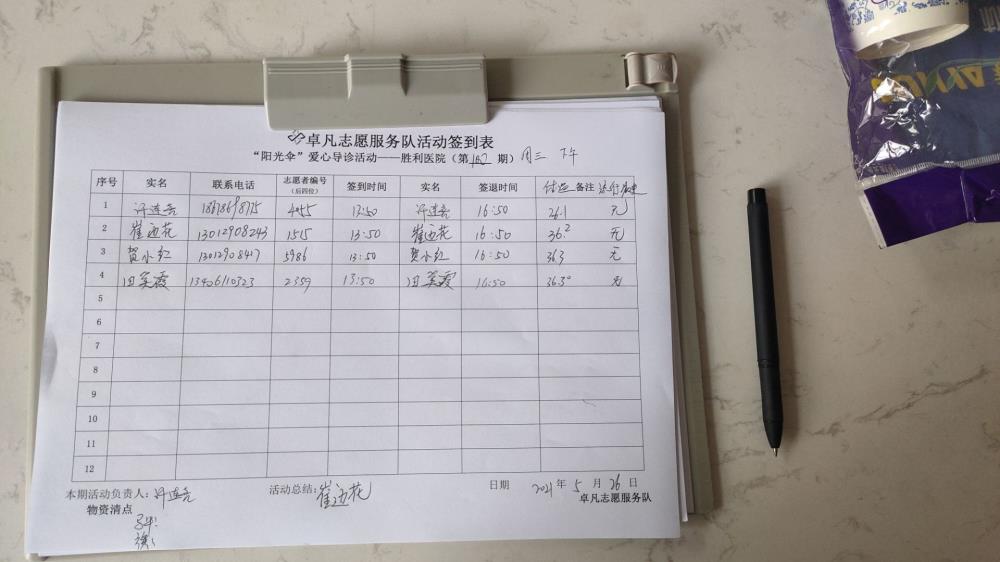 卓凡志愿服务队活动签到表
“阳光伞”爱心导诊活动——胜利医院（第152期）周三 下午
序号 实名 联系电话 志愿者编号（后四位） 签到时间 实名 签退时间 体温 备注
1 许连云 4055 13:50 许连云 16:50 36.1 无
2 崔迎花 13012908243 1515 13:50 崔迎花 16:50 36.2 无
3 贺小红 5986 13:50 贺小红 16:50 363 无
4 田英霞 13406110323 2359 13:50 田英霞 16:50 36.3° 无
5
6
7
8
9
10
11
12
本期活动负责人：许连云 活动总结：崔迎花 日期 2021年5月26日
物资清点 卓凡志愿服务队